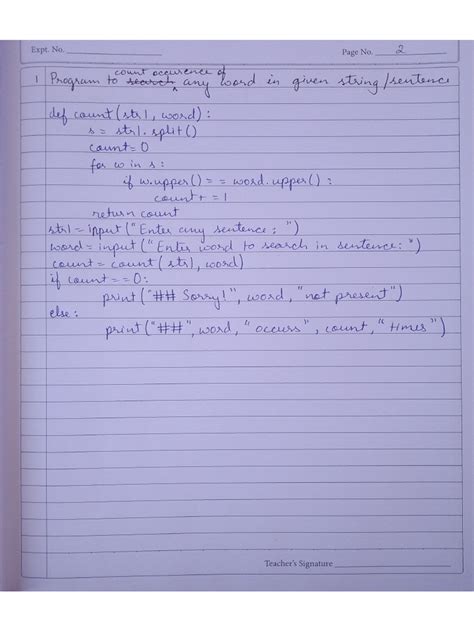 Expt. No.
Page No. 2
count occurence of
1 Program to search any word in given string/sentence
def count(str1, word):
s = str1.split()
count=0
for w in s:
if w.upper() == word.upper():
count+=1
return count
str1=input("Enter any sentence: ")
word=input("Enter word to search in sentence: ")
count=count(str1, word)
if count==0:
print("## Sorry!", word, "not present")
else:
print("##", word, "occurs", count, "times")
Teacher's Signature